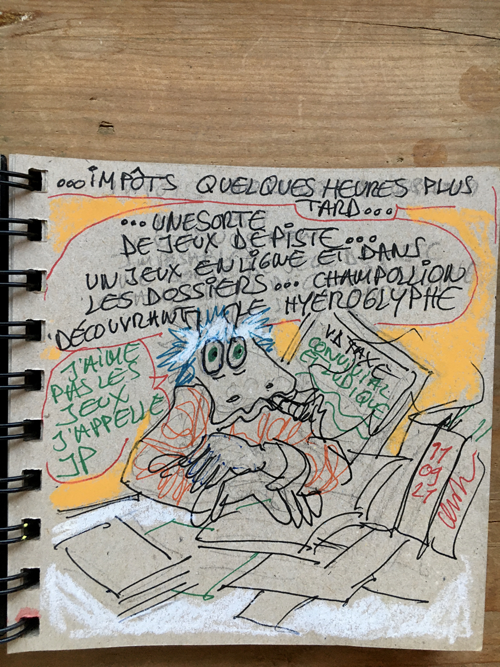 ...IMPÔTS QUELQUES HEURES PLUS
TARD...
...UNE SORTE
DE JEUX DE PISTE...
UN JEUX EN LIGNE ET DANS
LES DOSSIERS... CHAMPOLLION
DÉCOUVRANT LE HYÉROGLYPHE
J'AIME
PAS LES
JEUX
J'APPELLE
JP
VA TAXE
CONVIVIAL
ET LUDIQUE
11
09
21